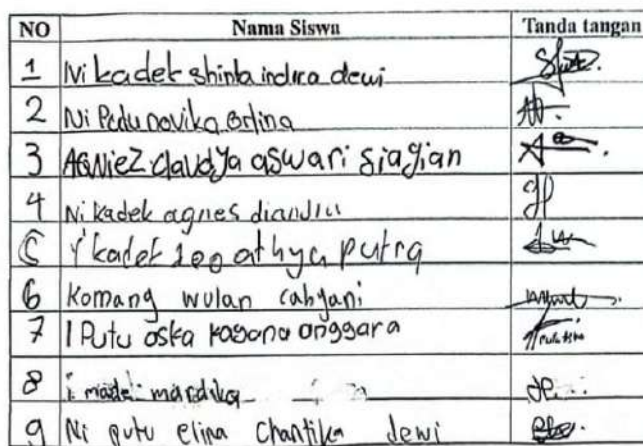 NO Nama Siswa Tanda tangan
1 Ni kadek shinta indira dewi
2 Ni Putu novika
3 AGNieZ claudya aswari siagian
4 Ni kadek agnes
5 I kadek leo athya putra
6 Komang wulan cahyani
7 I Putu oska anggara
8 i made mardika
9 Ni putu elina Chantika dewi